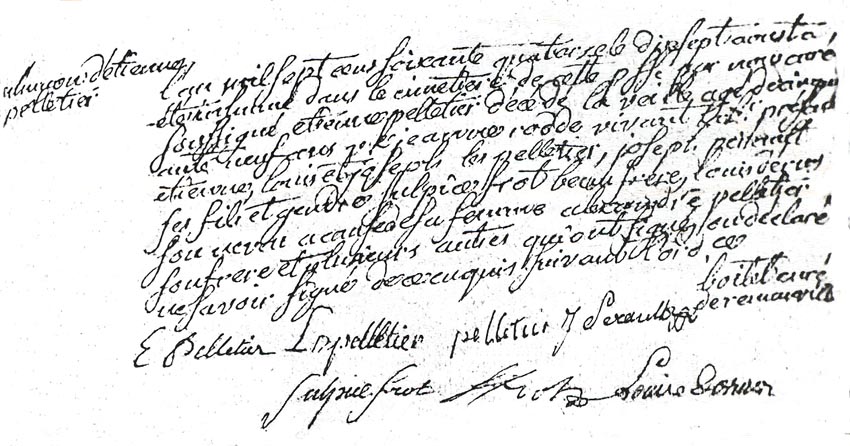 inhumation d'etienne
pelletier
l'an mil sept cens soixante quatorze le dix sept aousta
ete inhumé dans le cimetiere de cette psse par nous curé
soussigné etienne pelletier décédé la veille agé de cinqu
ante neuf ans vivant présens
etienne, louis et joseph les pelletier, joseph perrault
ses fils et gendre sulpice frot beaufrere, louis
son neveu a cause de sa femme alexandre pelletier
son frere et plusieurs autres qui ont signés ou declaré
ne savoir signé de ce enquis suivant l'oi d ce
curé
E Pelletier L pelletier pelletier J Perault
sulpice frot frot Louis